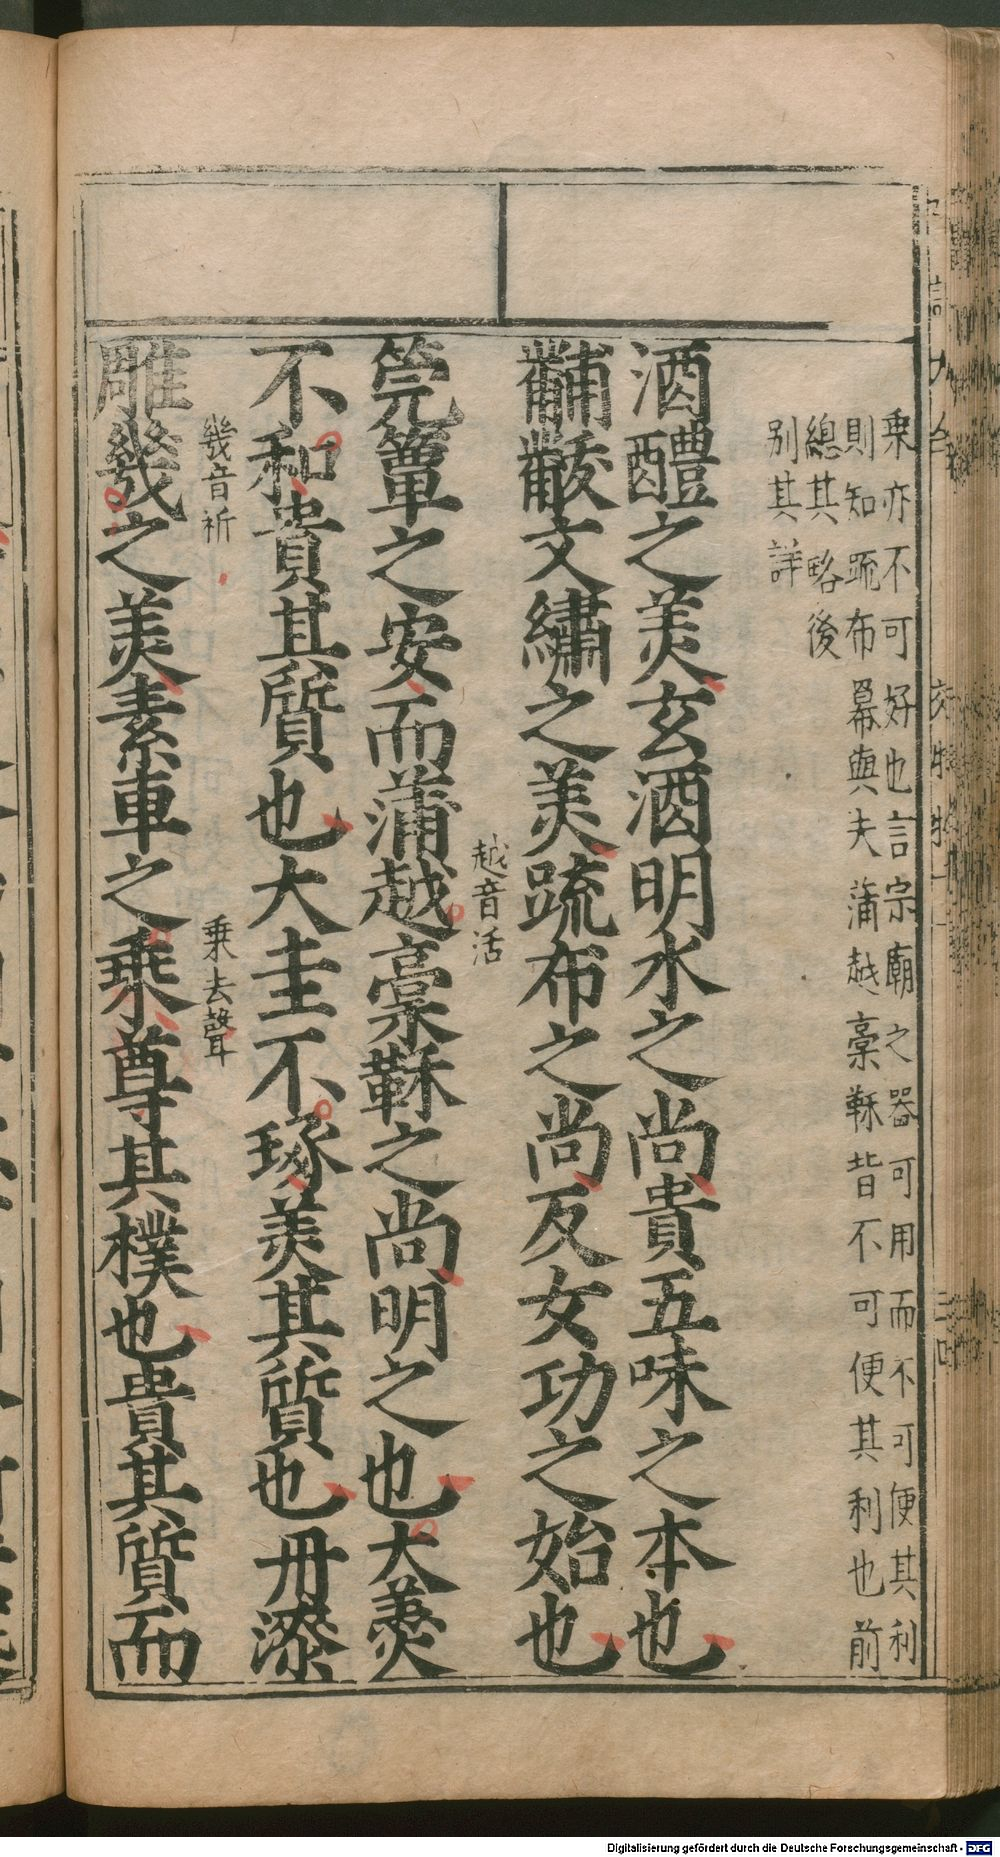 乗亦不可好也言宗廟之器可用而不可便其利
則知䟽布羃與夫蒲越稾鞂皆不可便其利也前
總其略後
別其詳
酒醴之美玄酒明水之尚貴五味之本也
黼黻文繡之美䟽布之尚反女功之始也
越音活
筦簟之安而蒲越稾鞂之尚明之也大羹
不和貴其質也大圭不琢美其質也丹漆
幾音祈
乗去聲
雕幾之美素車之乗尊其樸也貴其質而
Digitalisierung gefördert durch die Deutsche Forschungsgemeinschaft - DFG